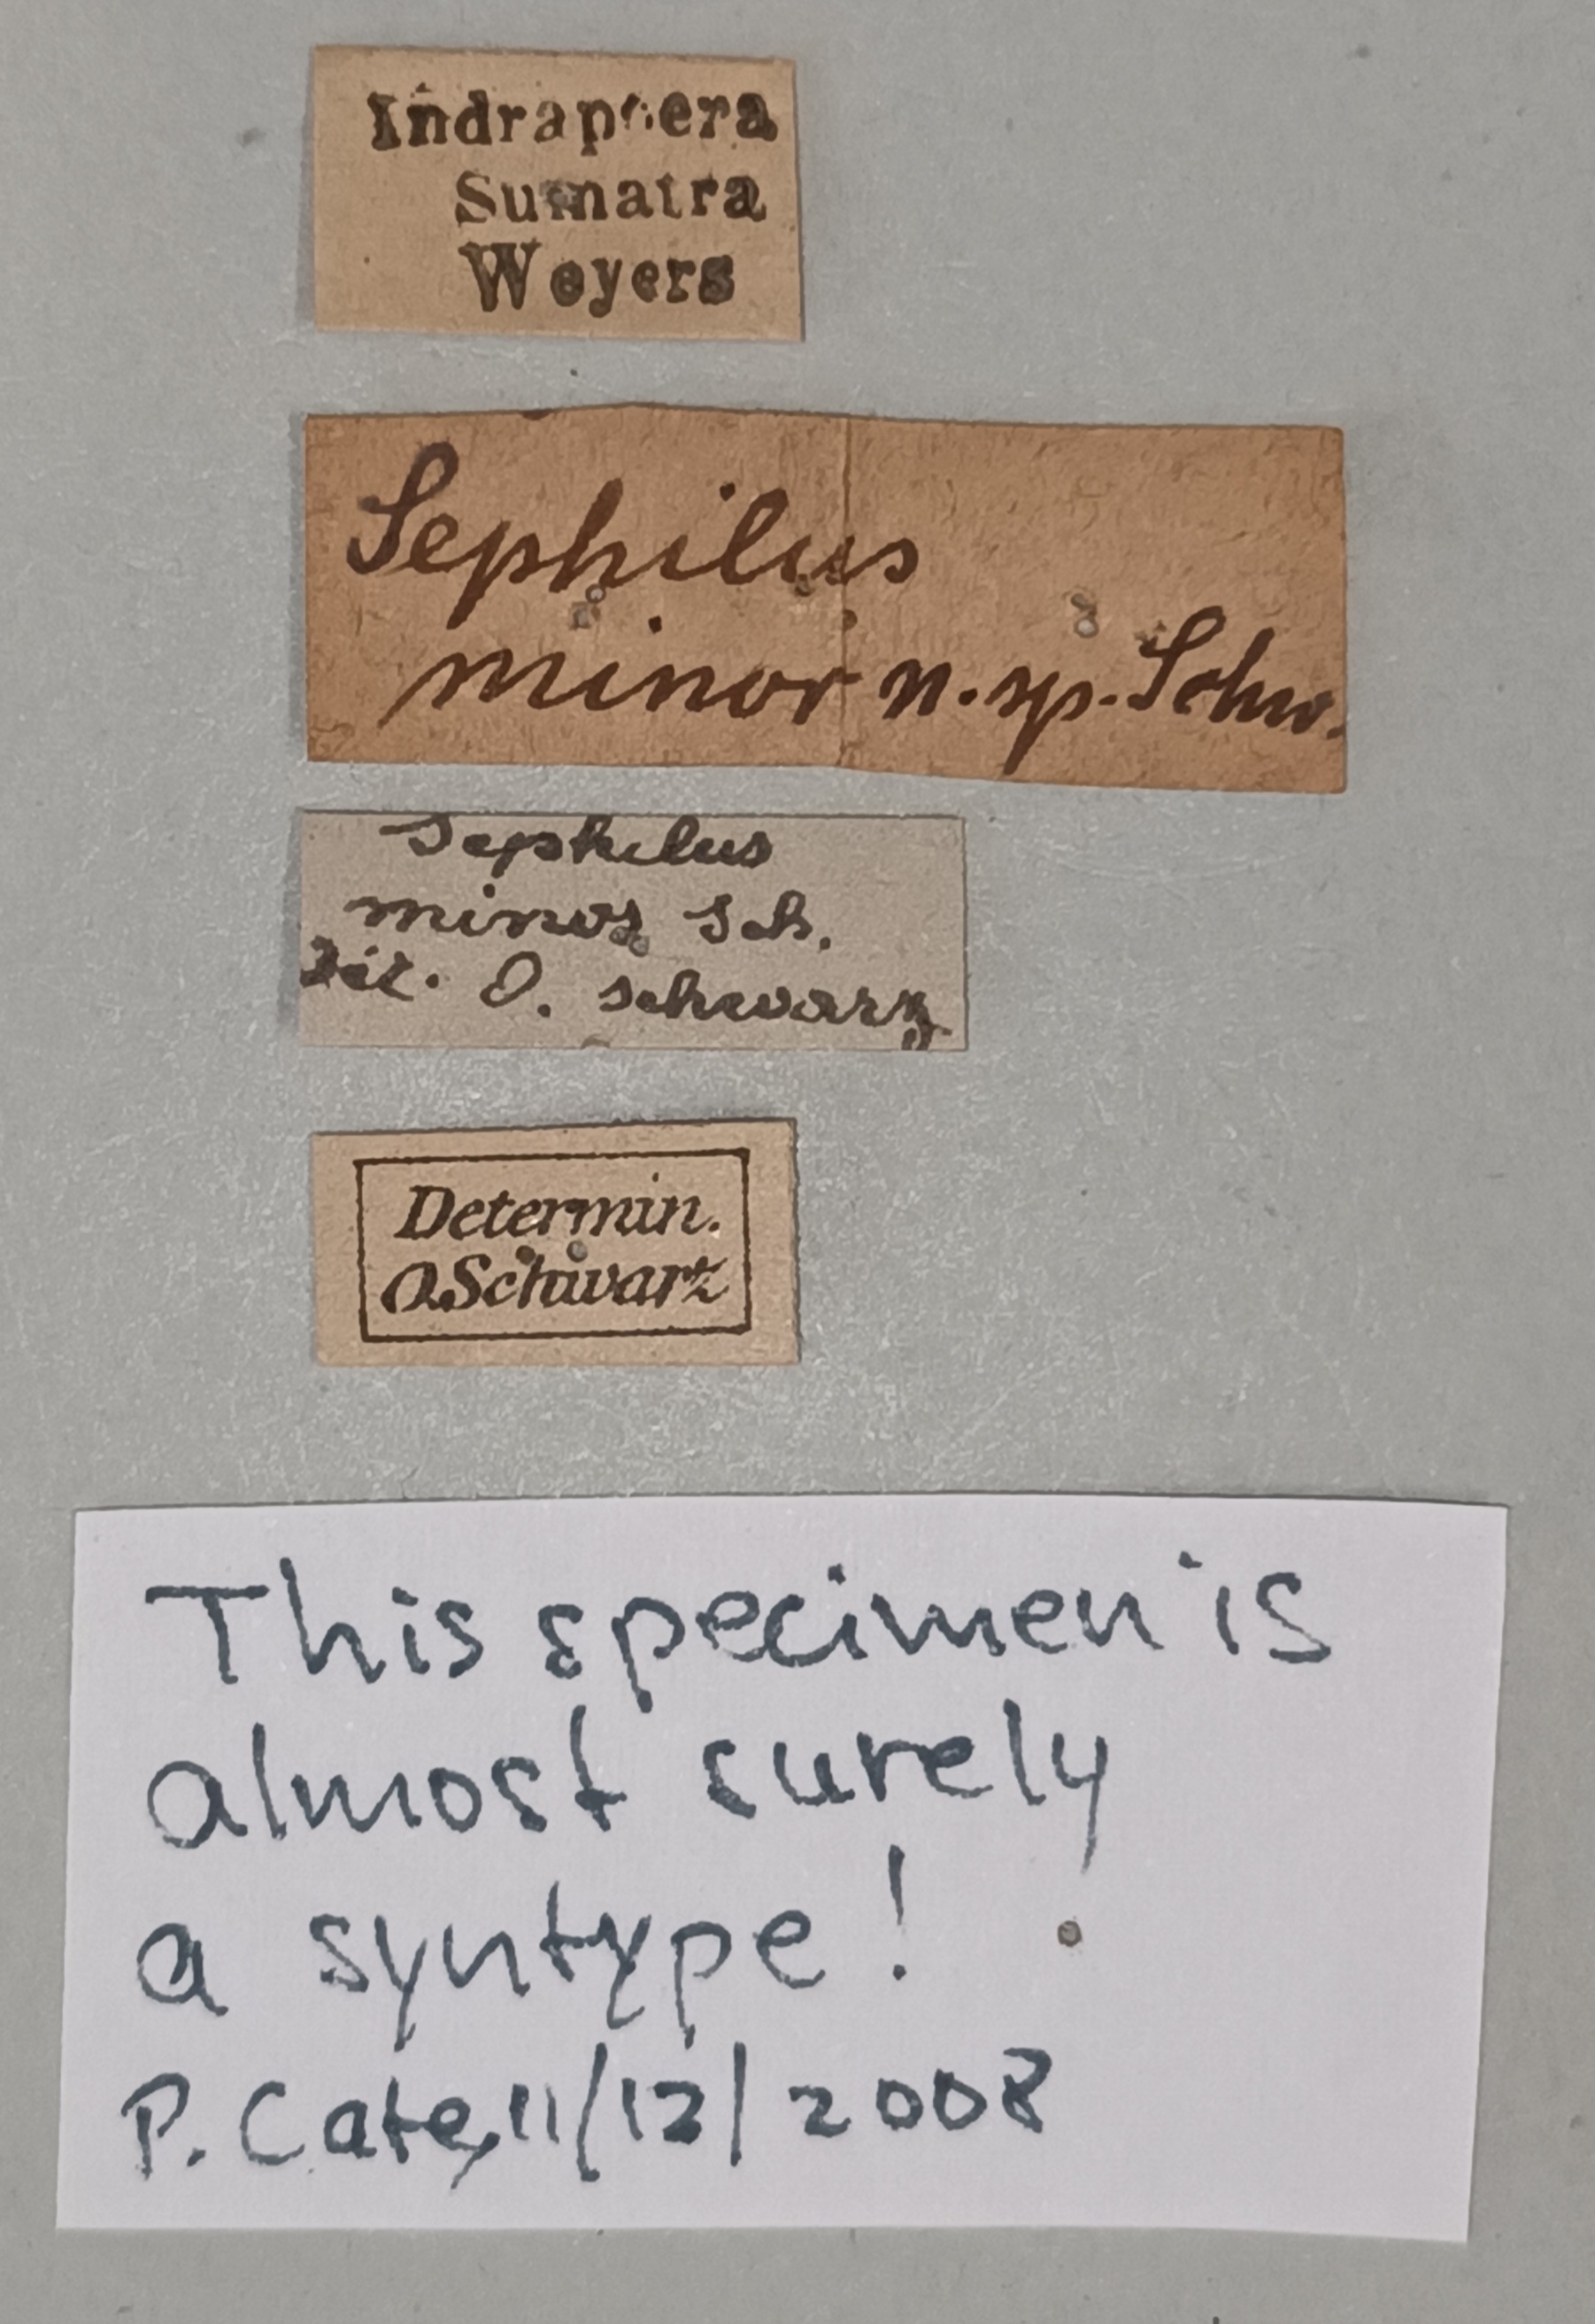 Sumatra
Weyers
Sephilus
minor n. sp. Schw.
Sephilus
minor Sch.
Det. O. Schwarz
Determin.
O. Schwarz
This specimen is
almost surely
a syntype!
P. Cate, 11/12/2008